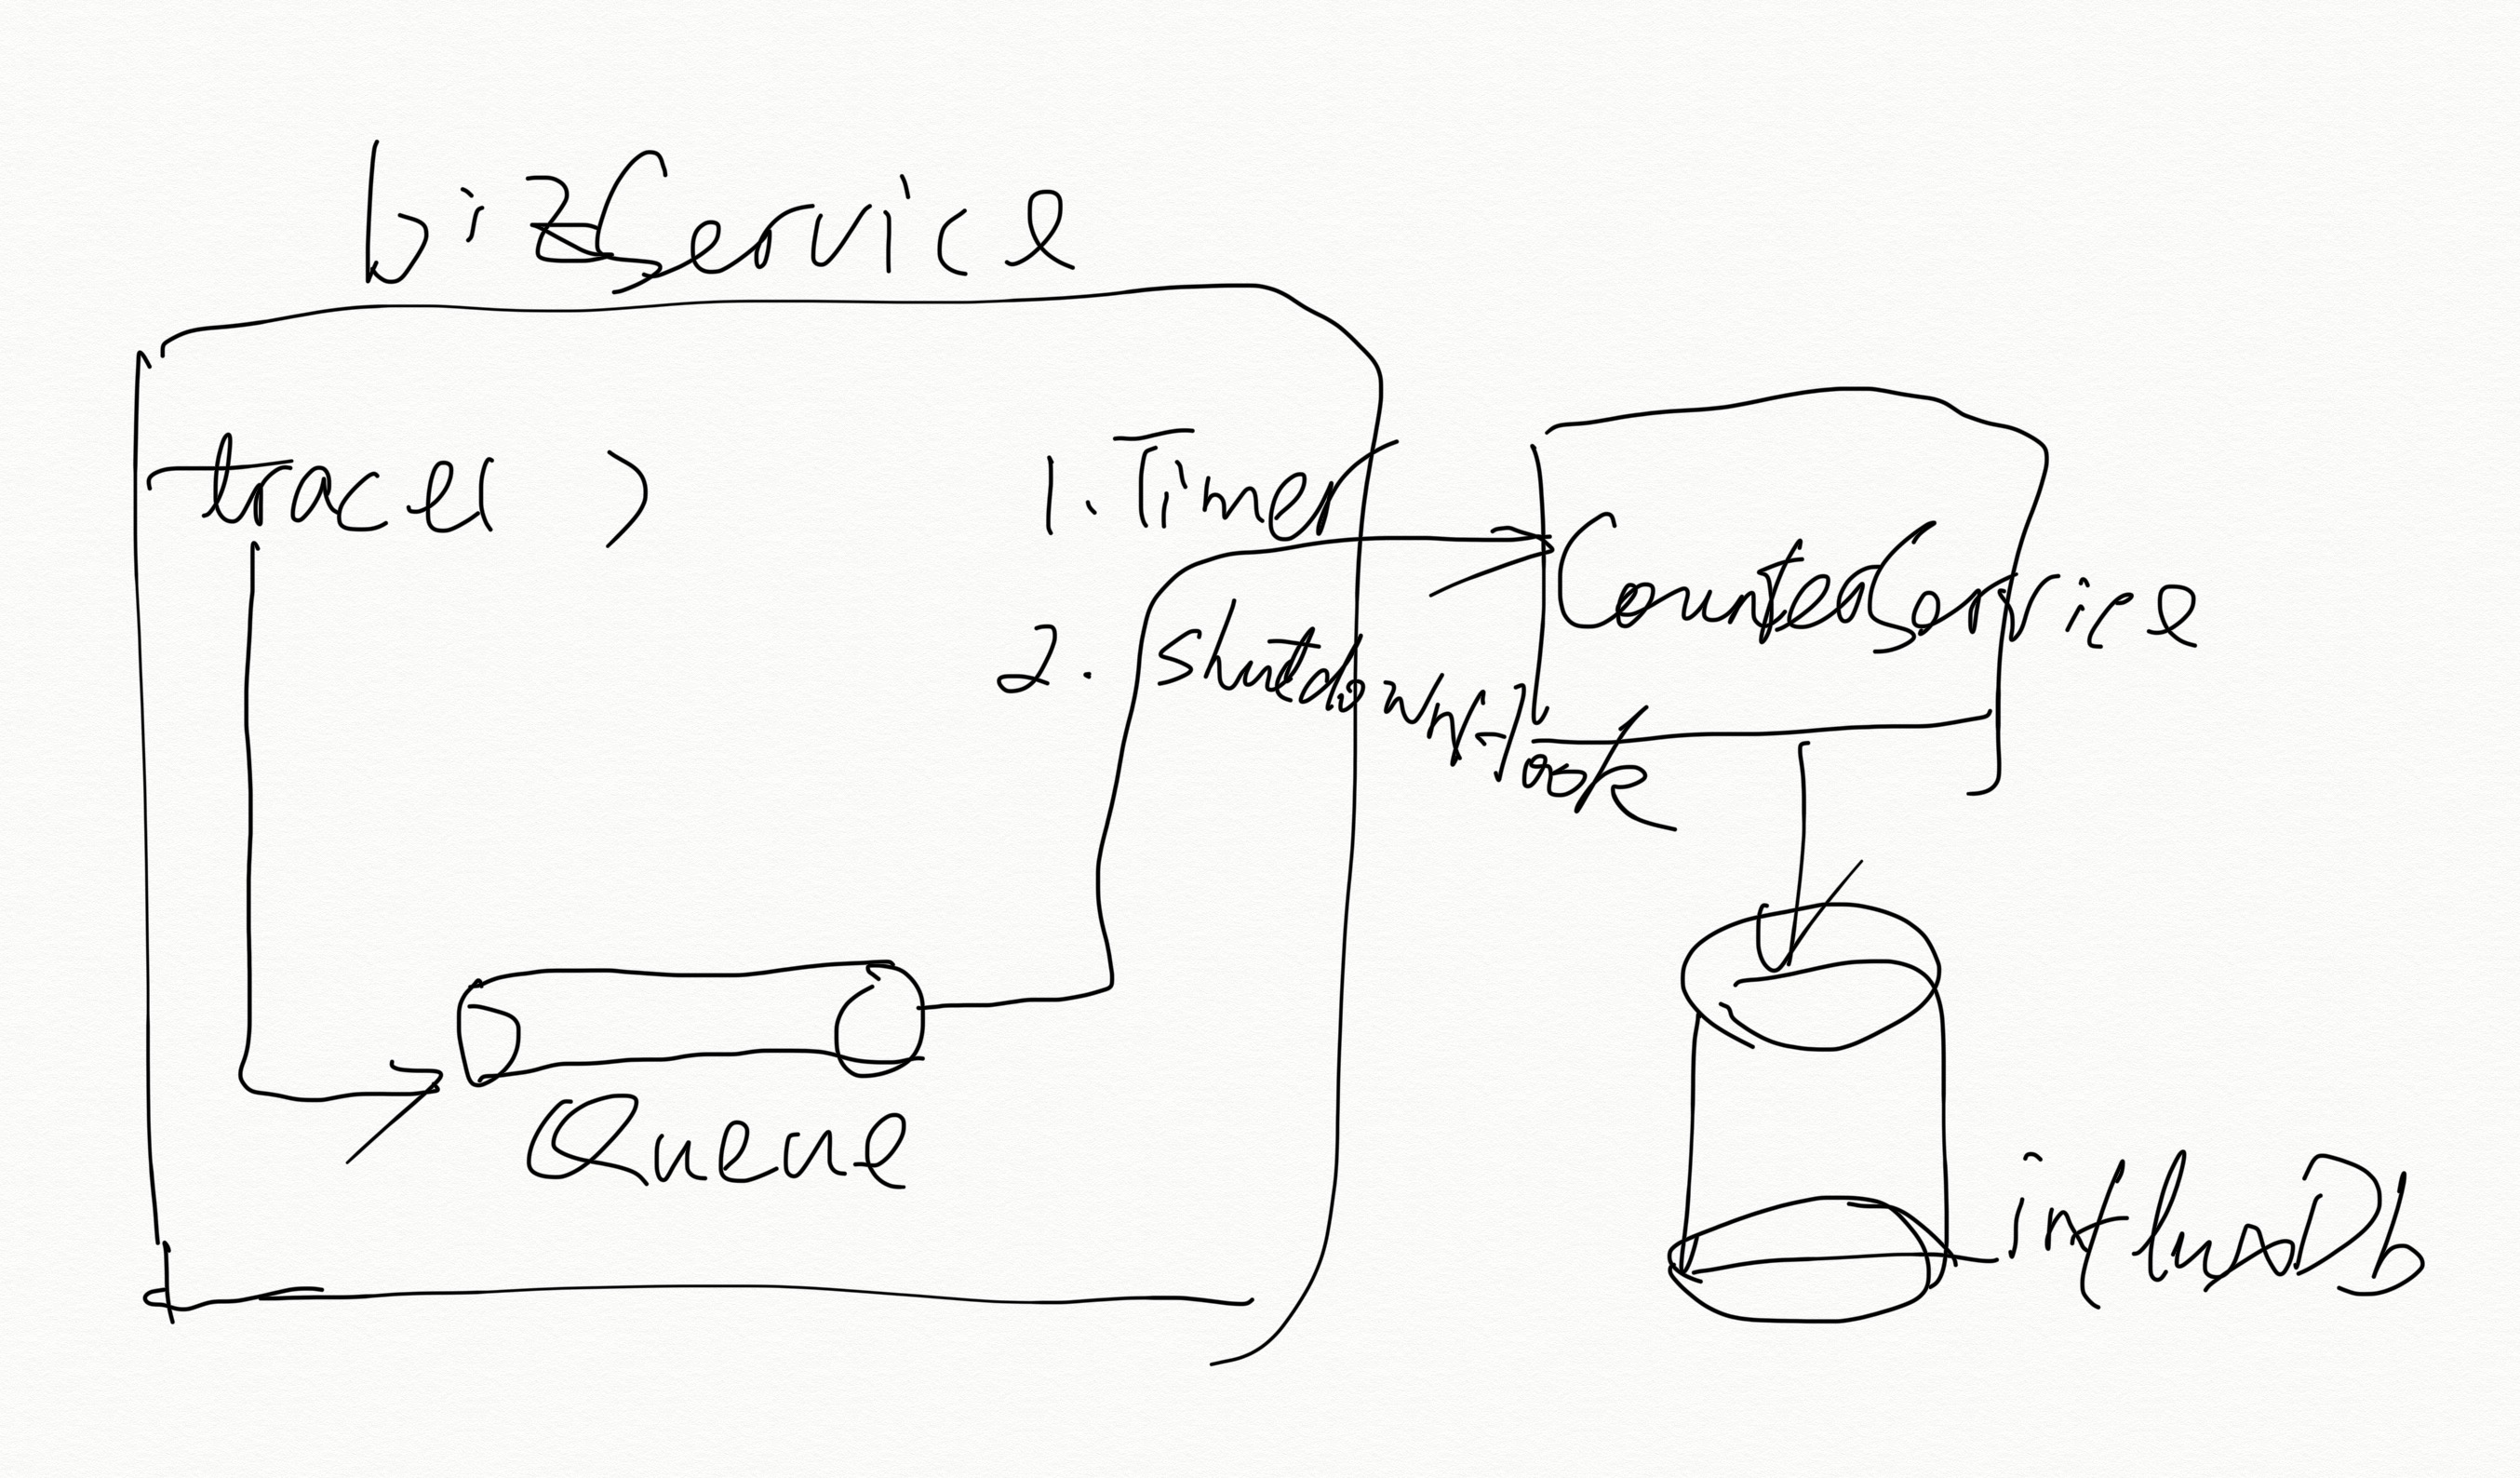 bizService
trace( )
1. Timer
2. Shutdown
CounterService
Queue
influxDb